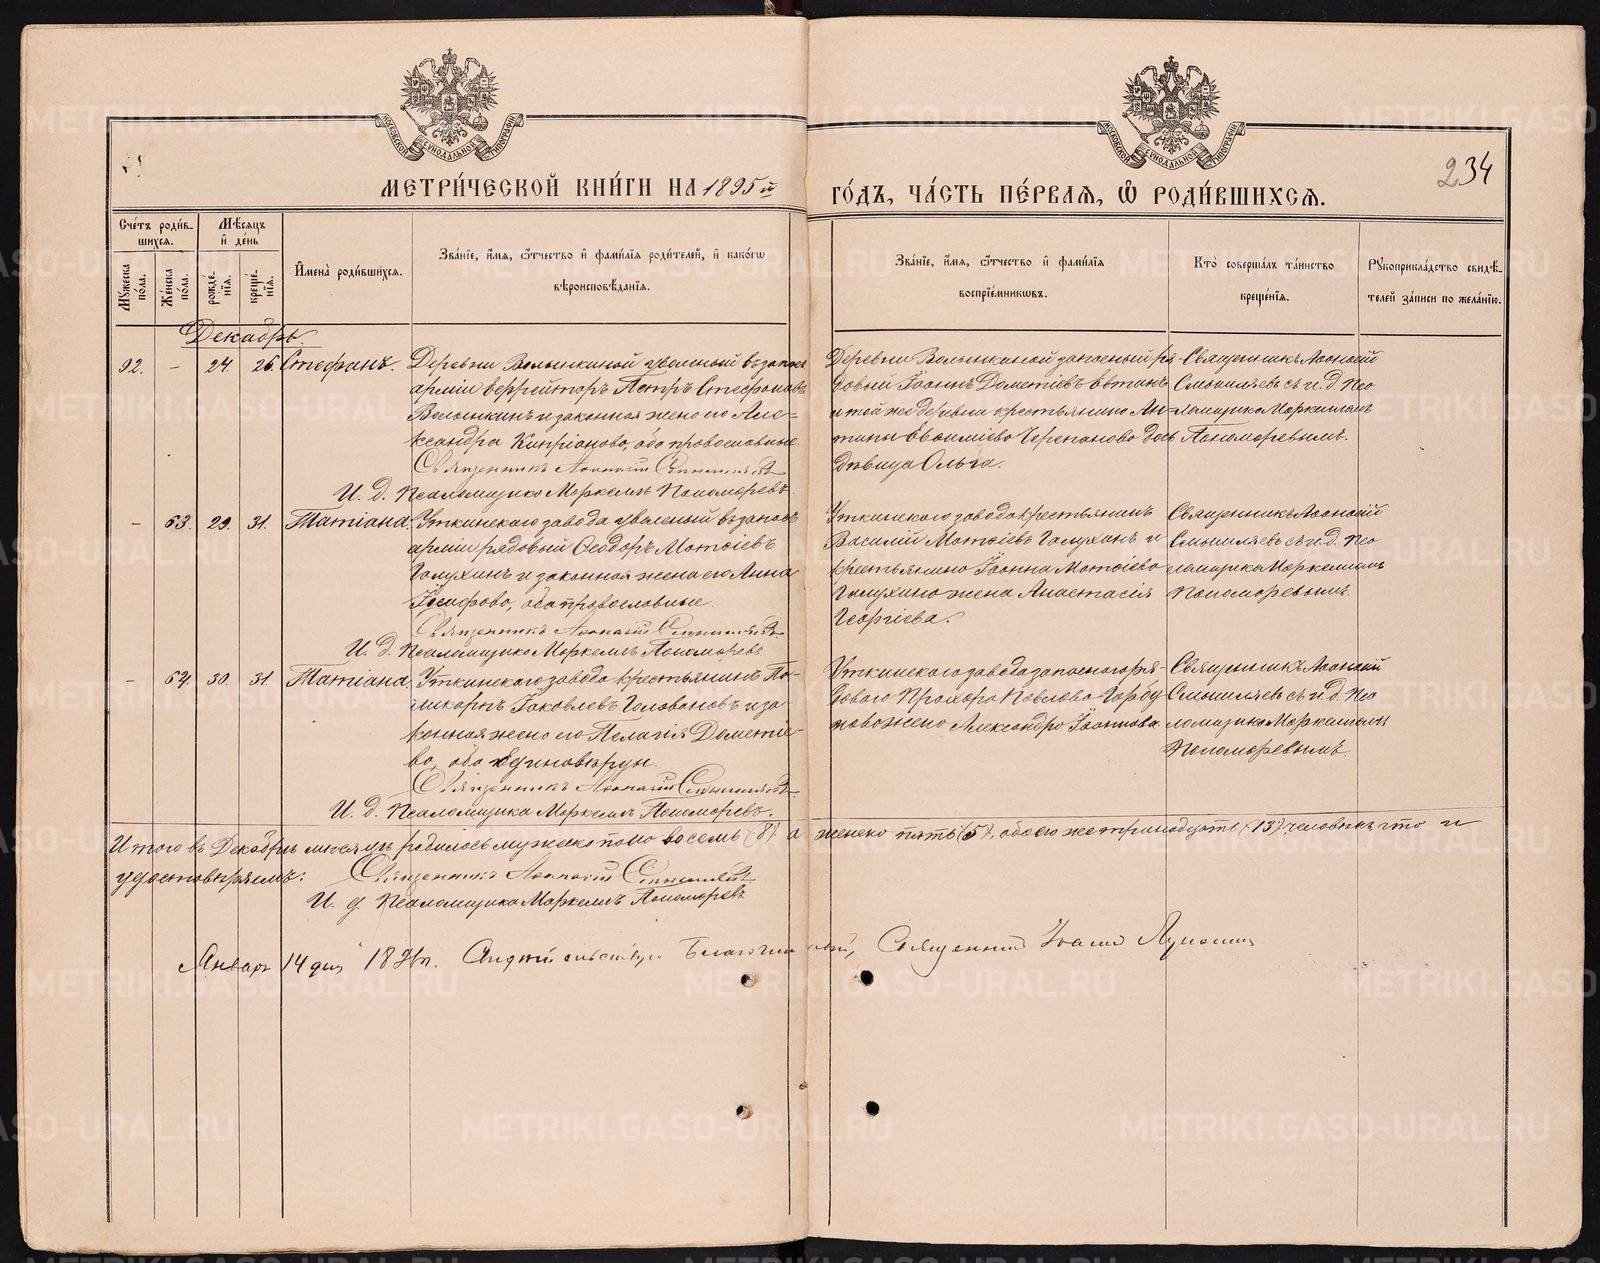 МЕТРИ́ЧЕСКОЙ КНИ́ГИ НА 1895й
ГО́ДЪ, ЧА́СТЬ ПЕ́РВАЯ, Ѽ РОДИ́ВШИХСЯ.
234
Сче́тъ роди́в-
шихся.
Мѣ́сяцъ
и́ де́нь
Му́жеска по́ла.
Же́нска по́ла.
рожде́-
нїѧ.
креще́-
нїѧ.
И҆мена̀ роди́вшихсѧ.
Зва́нїе, и҆́мѧ, ѻ҆́тчество и҆ фами́лїѧ роди́телей, и҆ како́гѡ
вѣроисповѣ́данїѧ.
Зва́нїе, и҆́мѧ, ѻ҆́тчество и҆ фами́лїѧ
воспрїе́мникѡвъ.
Кто̀ соверша́лъ та́инство
креще́нїѧ.
Рꙋкоприкла́дство свидѣ́-
телей за́писи по жела́нїю.
Декабрь.
92. - 24 26. Стефанъ.
Деревни Волынкиной уволеный въ запасъ
арміи ефрейторъ Петръ Стефановъ
Волынкинъ и законная жена его Але-
ксандра Кипріанова, оба православные
Священникъ Аѳанасій Смышляевъ
И. д. Псаломщика Маркеллъ Пономаревъ.
Деревни Волынкиной запасный ря-
довый Іоаннъ Дометіевъ
и той же деревни крестьянина Ан-
типы Евѳиміева Черепанова дочь
дѣвица Ольга.
Священникъ Аѳанасій
Смышляевъ съ и. д. Пса-
ломщика Маркелломъ
Пономаревымъ.
- 63. 29. 31. Татіана.
Уткинскаго завода уволеный въ запасъ
арміи рядовый Ѳеодоръ Матѳіевъ
Галухинъ и законная жена его Анна
Іосифова, оба православные
Священникъ Аѳанасій Смышляевъ
И. д. Псаломщика Маркеллъ Пономаревъ
Уткинскаго завода крестьянинъ
Василій Матѳіевъ Галухинъ и
крестьянина Іоанна Матѳіева
Галухина жена Анастасія
Георгіева.
Священникъ Аѳанасій
Смышляевъ съ и. д. Пса-
ломщика Маркелломъ
Пономаревымъ.
- 64. 30. 31. Татіана.
Уткинскаго завода крестьянинъ По-
ликарпъ Іаковлевъ Головановъ и за-
конная жена его Пелагія Дометіе-
ва, оба единовѣрцы.
Священникъ Аѳанасій Смышляевъ
И. д. Псаломщика Маркеллъ Пономаревъ.
Уткинскаго завода запаснаго ря-
доваго Прохора Павлова
жена Александра Іоаннова
Священникъ Аѳанасій
Смышляевъ съ и. д. Пса-
ломщика Маркелломъ
Пономаревымъ
Итого въ Декабрѣ мѣсяцѣ родилось мужеска пола восемь (8) а женска пять (5) обоего же тринадцать (13) человѣкъ что и
удостовѣряемъ: Священникъ Аѳанасій Смышляевъ
И. д. Псаломщика Маркеллъ Пономаревъ
Январь 14 дня 1896 г. Благочинный, Священникъ
METRIKI.GASO-URAL.RU